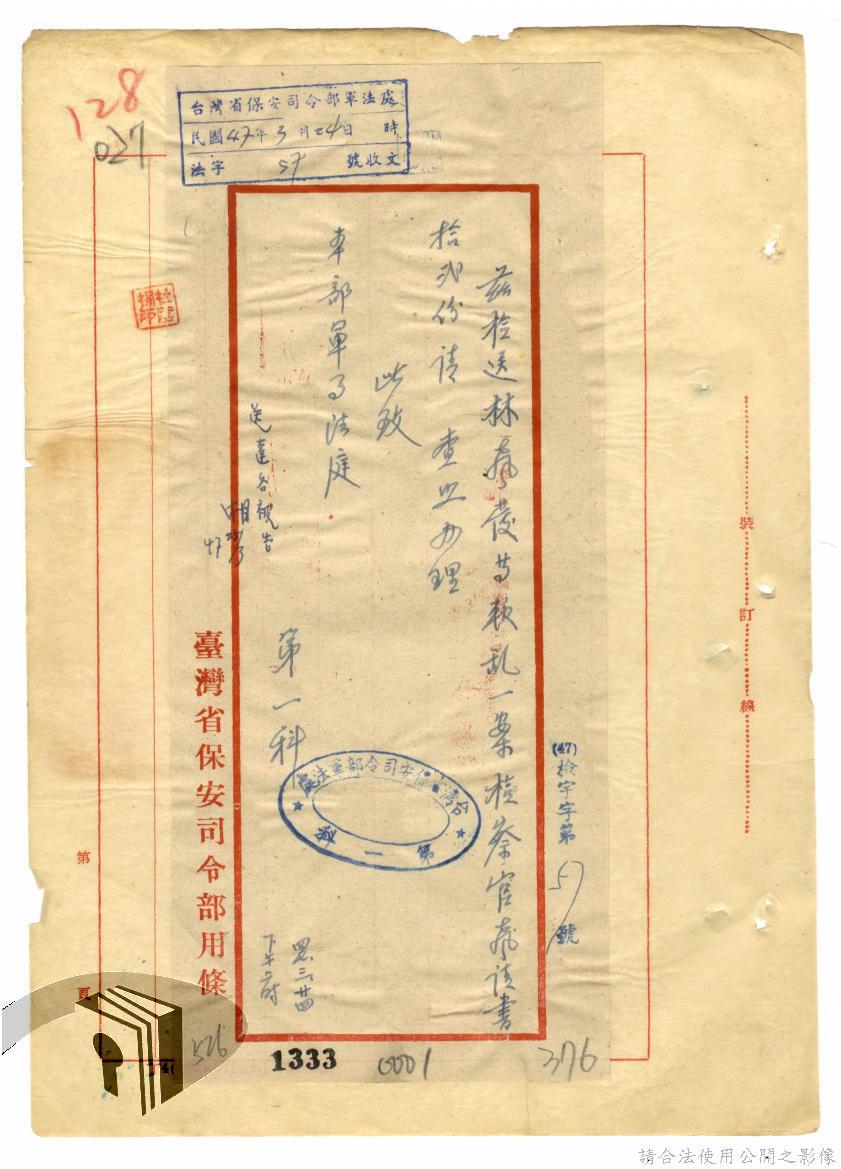 128
027
台灣省保安司令部軍法處
民國47年3月24日 時
法字 57 號收文
(47)檢字字第57號
茲檢送林 發等叛乱一案檢察官 請書
拾貳份請 查照办理
此致
本部軍事法庭
第一科
台灣省保安司令部軍法處
第一科
四七、三、廿四
下午 時
送達各被告
臺灣省保安司令部用條
裝 訂 線
第 頁
526
1333
0001
376
請合法使用公開之影像